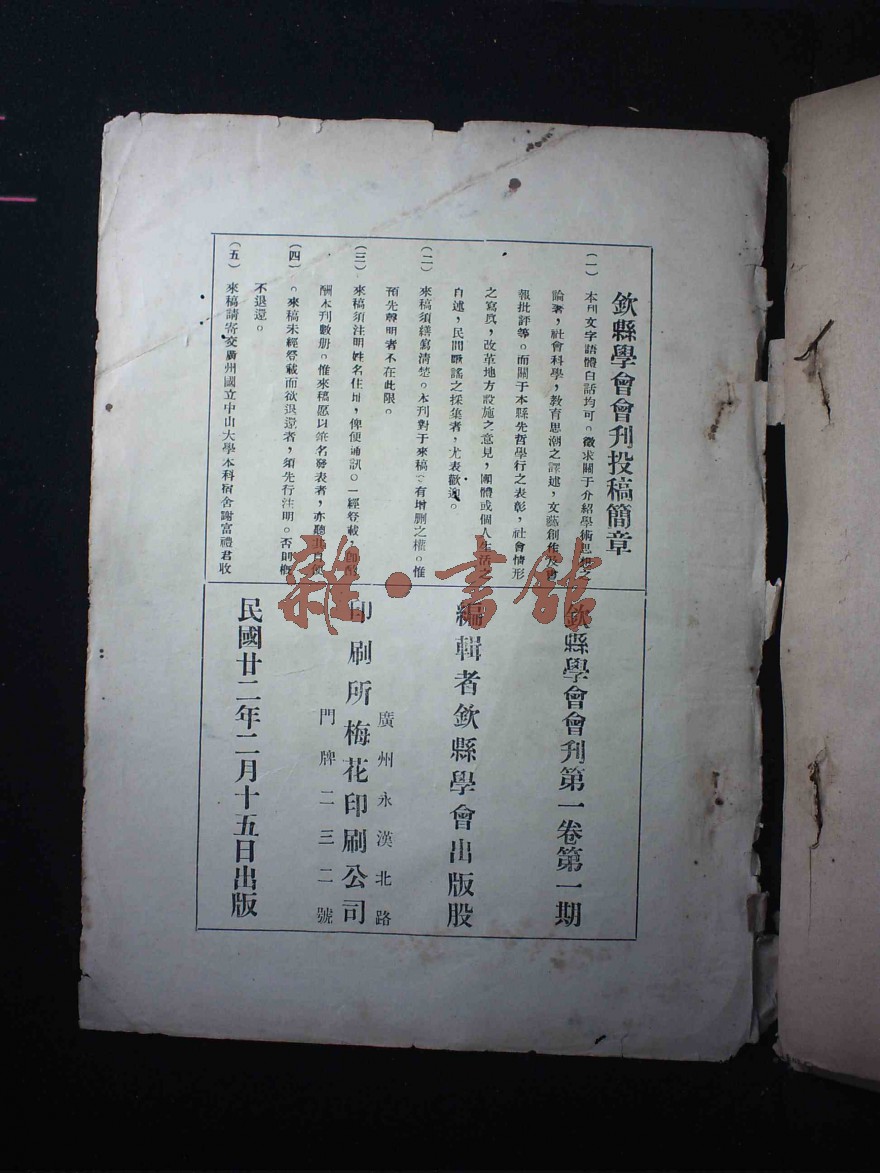 欽縣學會會刊投稿簡章
（一）　本刊文字語體白話均可。徵求關于介紹學術思想之
論著，社會科學，教育思潮之譯述，文藝創作及書
報批評等。而關于本縣先哲學行之表彰，社會情形
之寫眞，改革地方設施之意見，團體或個人生活之
自述，民間歌謠之採集者，尤表歡迎。
（二）　來稿須繕寫清楚。本刊對于來稿，有增删之權。惟
預先聲明者不在此限。
（三）　來稿須注明姓名住址，俾便通訊。一經登載，卽
酬本刊數册。惟來稿愿以筆名發表者，亦聽其自便
（四）　。來稿未經登載而欲退還者，須先行注明。否則概
不退還。
（五）　來稿請寄交廣州國立中山大學本科宿舍謝富禮君收
欽縣學會會刊第一卷第一期
編輯者欽縣學會出版股
廣州永漢北路
印刷所梅花印刷公司
門牌二三二號
民國廿二年二月十五日出版
雜·書館